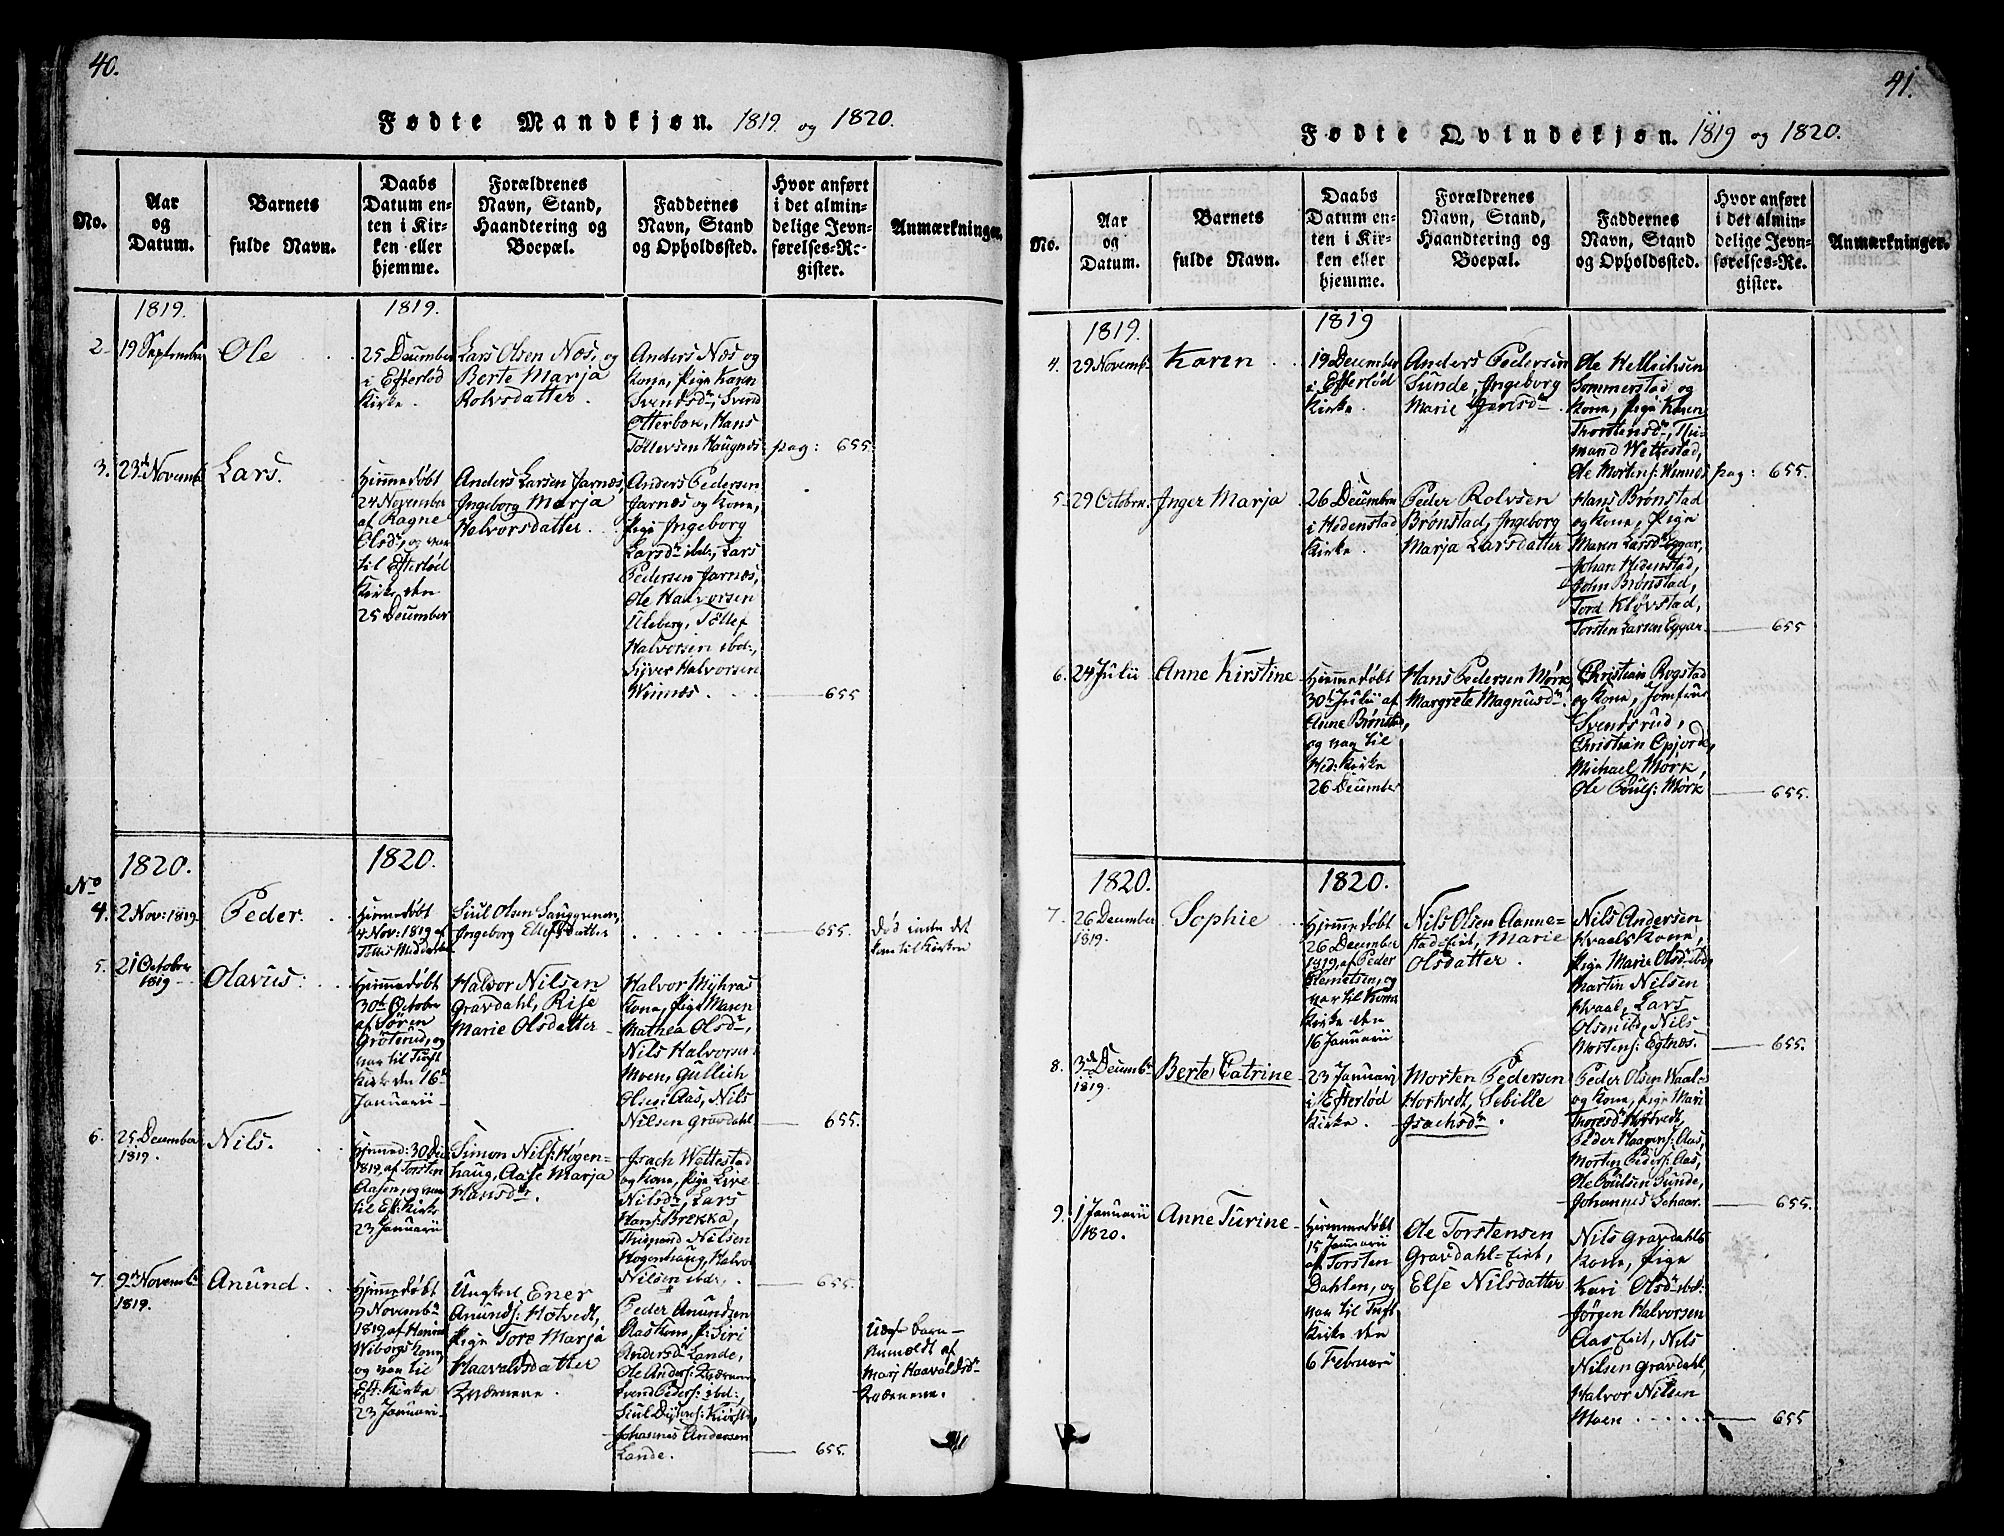 40.
Fødte Mandkjøn. 1819. og 1820.
No.
Aar
og
Datum.
Barnets
fulde Navn.
Daabs
Datum en-
ten i Kir-
ken eller
hjemme.
Forældrenes
Navn, Stand,
Haandtering og
Boepæl.
Faddernes
Navn, Stand
og Opholdssted.
Hvor anført
i det almin-
delige Jevn-
førelses-Re-
gister.
Anmærkninger.
1819.
1819.
2.
19 September
Ole
25 December
i Efterlød
Kirke.
Lars Olsen Næs, og
Berte Marja
Rolvsdatter.
Anders Næs og
Kone, Pige Karen
Svendsdr, Svend
Otterbæk, Hans
Tollevsen Haugnæs
pag: 655.
3.
23d Novemb.
Lars.
Hiemmedøbt
24 November
af Ragne
Elsdr, og var
til Efterlød
Kirke den
25 December
Anders Larsen Jarnæs,
Ingeborg Marja
Halvorsdatter.
Anders Pedersen
Jarnæs og Kone,
Pige Ingeborg
Larsdr ibd:, Lars
Pedersen Jarnæs,
Ole Halvorsen
Uleberg, Tollef
Halvorsen ibd:,
Syver Halvorsen
Winnæs.
655
1820.
1820.
No
4.
2 Nov: 1819.
Peder.
Hiemmedøbt
4 Nov: 1819 af
Siul Olsen
Ingeborg Ellefsdatter
655.
Død inden det
kom til Kirken
5.
21 October
1819
Olavus.
Hiemmedøbt
30te October
af Sören
Grøterud, og
var til Tugl.
Kirke den 16de
Januarii
Halvor Nilsen
Gravdahl, Rise
Marie Olsdatter
Halvor Myhras
Kone, Pige Maren
Mathea Olsdr,
Nils Halvorsen
Moen, Gullich
Olsen Aas, Nils
Nilsen Gravdahl
655.
6.
25 December
1819.
Nils.
Hjemmed: 30 Dec
1819 af Torsten
Aasen, og var
til Ef: Kirke
23 Januarii
Simon Nils: Høgen-
haug, Aase Marja
Hansdr.
Isach Wettestad
og Kone, Pige Live
Nilsdr, Lars
Hans: Brekka,
Thimand Nilsen
Hogenhaug, Halvor
Nilsen ibdr.
655.
7.
9de Novemb.
1819.
Anund.
Hjemmedøbt
9 Novembr
1819 af
Weborgs Kone,
og var til
Ef: Kirke
23 Januari
Ungkarl Ener
Anunds: Hotvedt,
Pige Tore Marja
Haavaldsdatter
Kværnene.
Peder Anundsen
Aas Kone, P: Siri
Andersdr Lande,
Ole Anders: Kværnen
Svend Peders: ibd:,
Siul
Johannes Andersen
Lande.
655.
Udæf barn
Anmeldt af
Mari Haavaldsdr
Kværnene.
41.
Fødte Qvindekjøn. 1819 og 1820.
No.
Aar
og
Datum.
Barnets
fulde Navn.
Daabs
Datum en-
ten i Kir-
ken eller
hjemme.
Forældrenes
Navn, Stand,
Haandtering og
Boepæl.
Faddernes
Navn, Stand
og Opholdssted.
Hvor anført
i det almin-
delige Jevn-
førelses-Re-
gister.
Anmærkninger.
1819.
1819
4.
29 Novemb.
Karen
19 December
i Efterlød
Kirke.
Anders Pedersen
Sunde, Ingeborg
Marie
Ole Hellichsen
Sommerstad og
Kone, Pige Karen
Thorstensdr, Thi-
mand Wettestad,
Ole Mortens: Kinnæs
pag: 655.
5.
29 October.
Inger Marja
26 December
i Hedenstad
Kirke.
Peder Rolvsen
Brønstad, Ingeborg
Marja Larsdatter
Hans Brønstad
og Kone, Pige
Maren Larsdr Eggar,
Johan Hedenstad,
John Brønstad,
Tord Kløvstad,
Torsten Larsen Eggar
655
6.
24 Julii
Anne Kirstine
Hiemmedøbt
30te Julii af
Anne Brønstad,
og var til
Hed: Kirke
26 December
Hans Pedersen Mørk,
Margrete Magnusdr.
Christian Rogstad
og Kone, Jomfrue
Svendsrud,
Christian Opjorde,
Michael Mørk,
Ole Pouls: Mørk
655.
1820.
1820.
7.
26 December
1819.
Sophie
Hjemmedøbt
26 December
1819, af Peder
Klemetsen, og
var til Koms
Kirke den
16 Januarii
Nils Olsen Aanne-
stad-Eiet, Marie
Olsdatter.
Nils Andersen
Hvaals Kone,
Pige Marie Olsd: ibd,
Martin Nilsen
Hvaal, Lars
Olsen ibd, Nils
Mortens: Egtnæs.
655.
8.
3d Decembr
1819.
Berte Catrine
23 Januari
i Efterlød
Kirke.
Morten Pedersen
Hortvedt, Sebille
Isachsdr.
Peder Olsen Waal-
og Kone, Pige Mari
Thoresdr Hotvedt,
Peder Haagens: Aas,
Morten Peders: Aas,
Ole Poulsen Sunde,
Johannes Schaar.
655.
9.
1 Januarii
1820.
Anne Turine
Hjemmedøbt
15 Januarii
af Torsten
Dahlen, og
var til Tugl.
Kirke den
6 Februarii
Ole Torstensen
Gravdahl-Eiet,
Else Nilsdatter
Nils Gravdahls
Kone, Pige
Kari Olsdr ibd:
Jørgen Halvorsen
Aas Eiet, Nils
Nilsen Gravdahl,
Halvor Nilsen
Moen
655